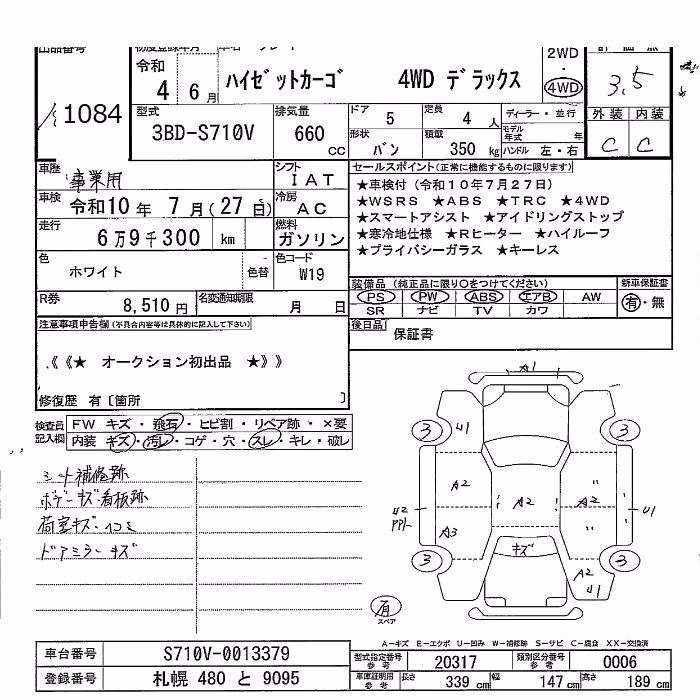 出品番号 1084
初度登録年月 令和 4 6月
ハイゼットカーゴ 4WD デラックス
2WD ・ 4WD
3.5
型式 3BD-S710V
排気量 660 CC
ドア 5 定員 4 人
形状 バン 積載 350 kg
ディーラー・並行
モデル年式 年
ハンドル 左・右
外装 内装
C C
車歴 事業用
シフト IAT
車検 令和10年 7月(27日)
冷房 AC
走行 6万9千300 km
燃料 ガソリン
色 ホワイト 色替
色コード W19
R券 8,510円
名変通知期限 月 日
セールスポイント(正常に機能するものに限ります)
★車検付(令和10年7月27日)
★WSRS ★ABS ★TRC ★4WD
★スマートアシスト ★アイドリングストップ
★寒冷地仕様 ★Rヒーター ★ハイルーフ
★プライバシーガラス ★キーレス
装備品(純正品に限り○をつけてください) 新車保証書
PS PW ABS エアB AW 有・無
SR ナビ TV カワ
後日品 保証書
注意事項申告欄(不具合内容等は具体的に記入して下さい)
《《★ オークション初出品 ★》》
修復歴 有〔箇所 〕
検査員記入欄
FW キズ・飛石・ヒビ割・リペア跡・×要
内装 キズ・汚レ・コゲ・穴・スレ・キレ・破レ
シート補修跡
ボデーキズ・看板跡
荷室キズ・凹ミ
ドアミラーキズ
A1
3 U1 3
A2 A2 A2
U2 U1
A3
キズ
3 A2 3
U1
A1
有
スペア
A-キズ E-エクボ U-凹み W-補修跡 S-サビ C-腐食 XX-交換済
車台番号 S710V-0013379
型式指定番号 参考 20317 類別区分番号 参考 0006
登録番号 札幌 480 と 9095
車庫証明用 参考 長さ 339 cm 幅 147 cm 高さ 189 cm